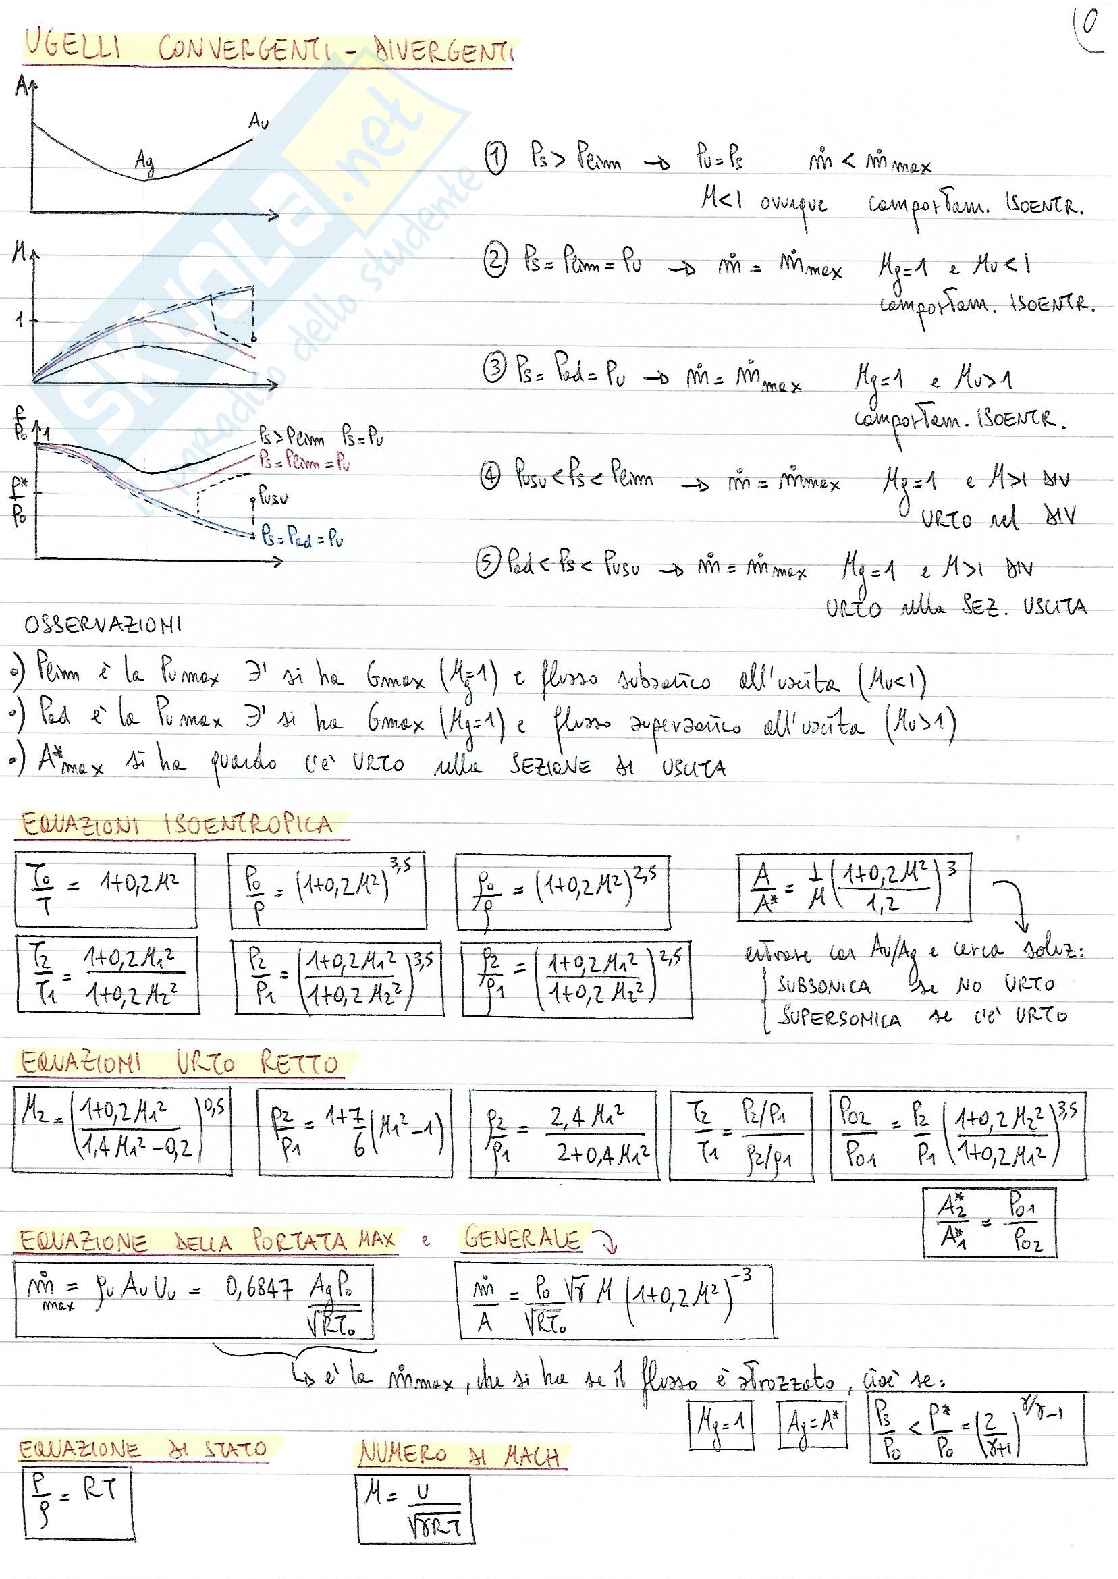 10
UGELLI CONVERGENTI - DIVERGENTI
A
Ag
Au
① Ps > Plim → Pu = Ps ṁ < ṁmax
M<1 ovunque comportam. ISOENTR.
② Ps = Plim = Pu → ṁ = ṁmax Mg=1 e Mu<1
comportam. ISOENTR.
M
1
③ Ps = Pad = Pu → ṁ = ṁmax Mg=1 e Mu>1
comportam. ISOENTR.
P/P0
1
Ps>Plim Ps=Pu
Ps=Plim=Pu
P*/P0
Pusu
Ps=Pad=Pu
④ Pusu < Ps < Plim → ṁ = ṁmax Mg=1 e M>1 DIV
URTO nel DIV
⑤ Pad < Ps < Pusu → ṁ = ṁmax Mg=1 e M>1 DIV
URTO nella SEZ. USCITA
OSSERVAZIONI
•) Plim è la Pu max ∃' si ha Gmax (Mg=1) e flusso subsonico all'uscita (Mu<1)
•) Pad è la Pu max ∃' si ha Gmax (Mg=1) e flusso supersonico all'uscita (Mu>1)
•) A*max si ha quando c'è URTO nella SEZIONE DI USCITA
EQUAZIONI ISOENTROPICA
T0/T = 1+0,2M²
P0/P = (1+0,2M²)^3,5
ρ0/ρ = (1+0,2M²)^2,5
A/A* = 1/M ((1+0,2M²)/1,2)^3
T2/T1 = (1+0,2M1²)/(1+0,2M2²)
P2/P1 = ((1+0,2M1²)/(1+0,2M2²))^3,5
ρ2/ρ1 = ((1+0,2M1²)/(1+0,2M2²))^2,5
entrare con Au/Ag e cerca soluz:
SUBSONICA se NO URTO
SUPERSONICA se c'è URTO
EQUAZIONI URTO RETTO
M2 = ((1+0,2M1²)/(1,4M1²-0,2))^0,5
P2/P1 = 1+7/6 (M1²-1)
ρ2/ρ1 = 2,4M1²/(2+0,4M1²)
T2/T1 = (P2/P1)/(ρ2/ρ1)
P02/P01 = P2/P1 ((1+0,2M2²)/(1+0,2M1²))^3,5
A2*/A1* = P01/P02
EQUAZIONE DELLA PORTATA MAX e GENERALE
ṁmax = ρu Au Uu = 0,6847 AgP0/√RT0
ṁ/A = P0/√RT0 √γ M (1+0,2M²)^-3
↳ è la ṁmax, che si ha se il flusso è strozzato, cioè se:
Mg=1
Ag=A*
Ps/P0 < P*/P0 = (2/(γ+1))^γ/γ-1
EQUAZIONE DI STATO
NUMERO DI MACH
P/ρ = RT
M = U/√γRT
SKUOLA.net
paradiso dello studente